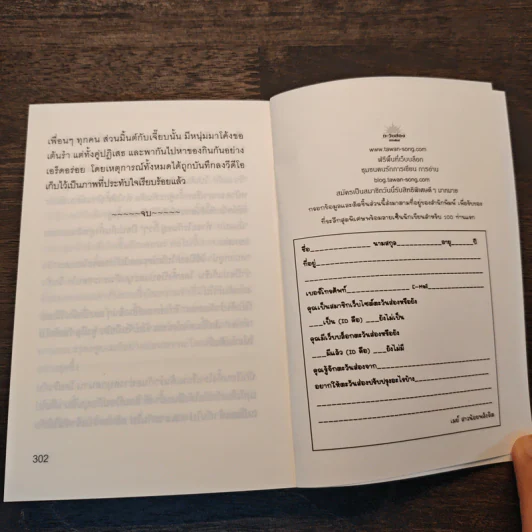 เพื่อนๆ ทุกคน ส่วนมิ้นต์กับเจี๊ยบนั้น มีหนุ่มมาโค้งขอ
เต้นรำ แต่ทั้งคู่ปฏิเสธ และพากันไปหาของกินกันอย่าง
เอร็ดอร่อย โดยเหตุการณ์ทั้งหมดได้ถูกบันทึกลงวีดีโอ
เก็บไว้เป็นภาพที่ประทับใจเรียบร้อยแล้ว
~~~~~จบ~~~~~
302
www.tawan-song.com
ฟรีพื้นที่เว็บบล็อก
ชุมชนคนรักการเขียน การอ่าน
blog.tawan-song.com
สมัครเป็นสมาชิกวันนี้รับสิทธิพิเศษต่างๆ มากมาย
กรอกข้อมูลและตัดชิ้นส่วนนี้ส่งมาตามที่อยู่ของสำนักพิมพ์ เพื่อรับของ
ที่ระลึกสุดพิเศษพร้อมลายเซ็นนักเขียนสำหรับ 100 ท่านแรก
ชื่อ____________นามสกุล____________อายุ______ปี
ที่อยู่____________
เบอร์โทรศัพท์____________e-mail____________
คุณเป็นสมาชิกเว็บไซต์ตะวันส่องหรือยัง
___เป็น (ID คือ) ___ยังไม่เป็น
คุณมีเว็บบล็อกตะวันส่องหรือยัง
___มีแล้ว (ID คือ) ___ยังไม่มี
คุณรู้จักตะวันส่องจาก____________
อยากให้ตะวันส่องปรับปรุงอะไรบ้าง____________